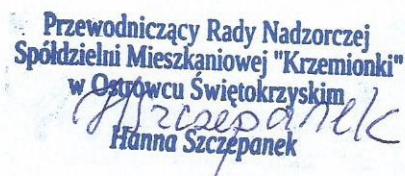 Przewodniczący Rady Nadzorczej
Spółdzielni Mieszkaniowej "Krzemionki"
w Ostrowcu Świętokrzyskim
HSzczepanek
Hanna Szczepanek